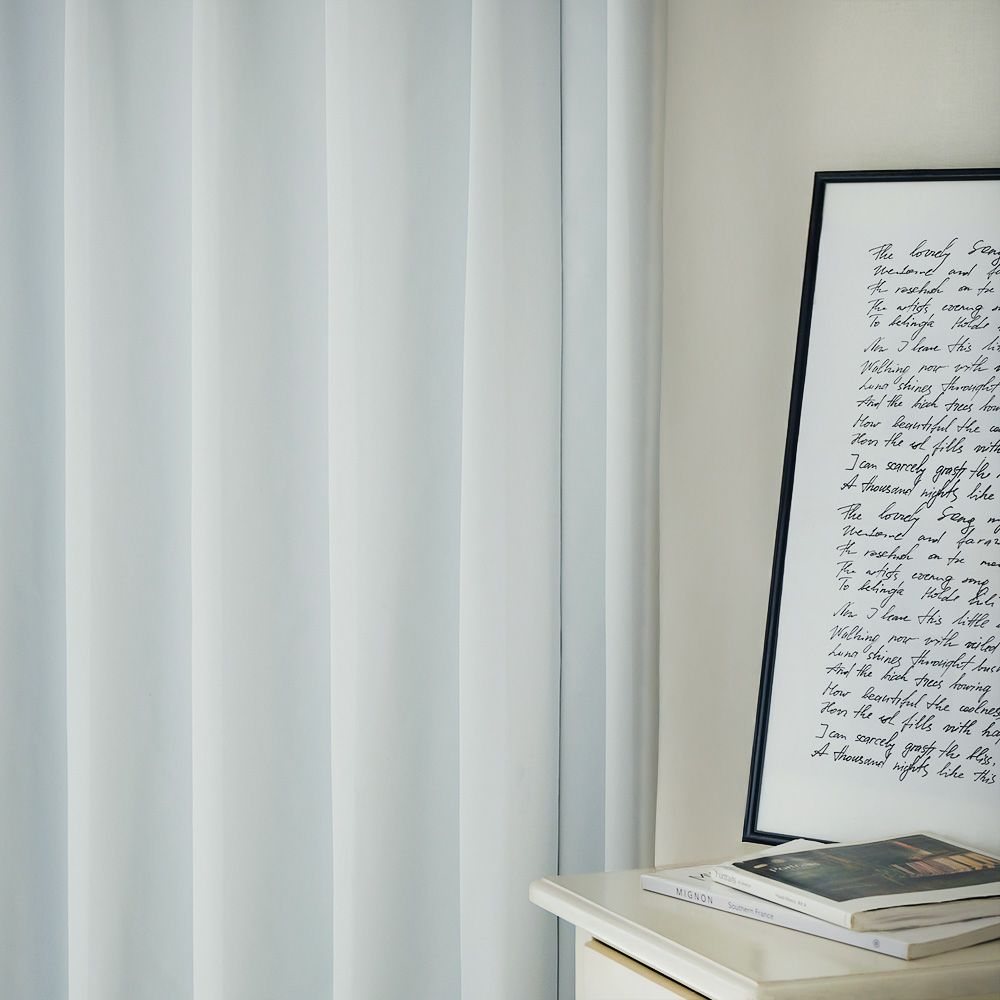 The lovely Song
Welcome and fa
the rosebush on the
The artists evening
To belinga Holds
Now I leave this lit
Walking now with
Luna shines throught
And the birch trees bow
How beautiful the coo
How the sol fills with
I can scarcely grasp the
A thousand nights like
The lovely Song my
Welcome and faraw
the rosebush on the
The artists evening song
To belinga Holds
Now I leave this little
Walking now with veiled
Luna shines throught bush
And the birch trees bowing
How beautiful the coolness
How the sol fills with ha
I can scarcely grasp the bliss,
A thousand nights like this
Portraits
Portraits
MIGNON Southern France